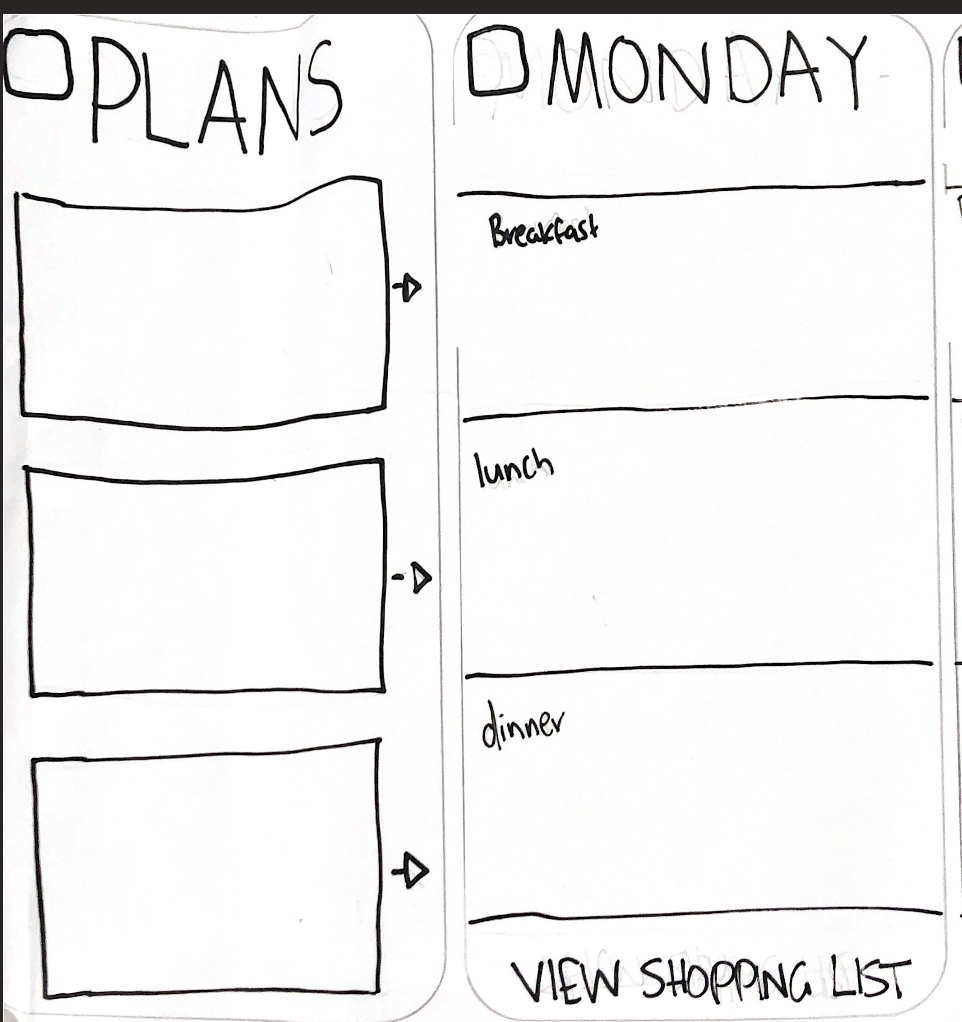 PLANS
MONDAY
Breakfast
lunch
dinner
VIEW SHOPPING LIST